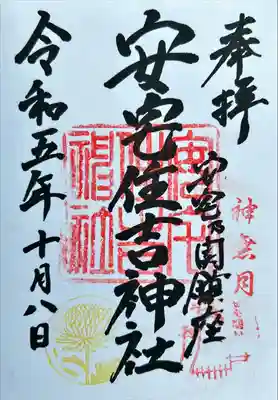 奉拝
神無月
安宅住吉神社
安宅住吉神社
令和五年十月八日